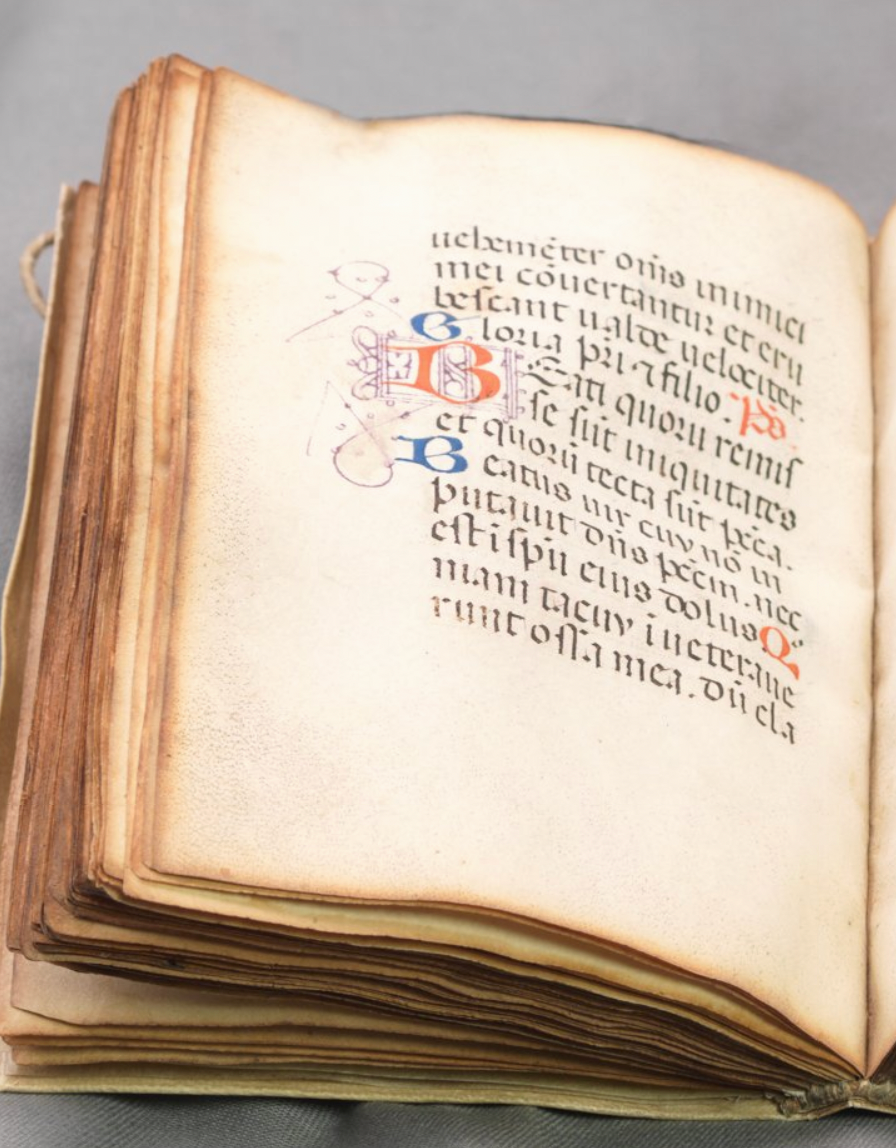 uehemẽter om̃s inimici
mei cõuertantur et eru
bescant ualde uelociter.
Gloria p̃ri ⁊ filio. P̃s
BEati quorũ remis
se sũt iniquitates
et quorũ tecta sũt pc̃ca.
Beatus uir cuy nõ in
putauit dñs pc̃cm̃. nec
est ĩ spũ eius dolus Qº
niam tacuy ĩueteraue
runt ossa mea. dũ cla